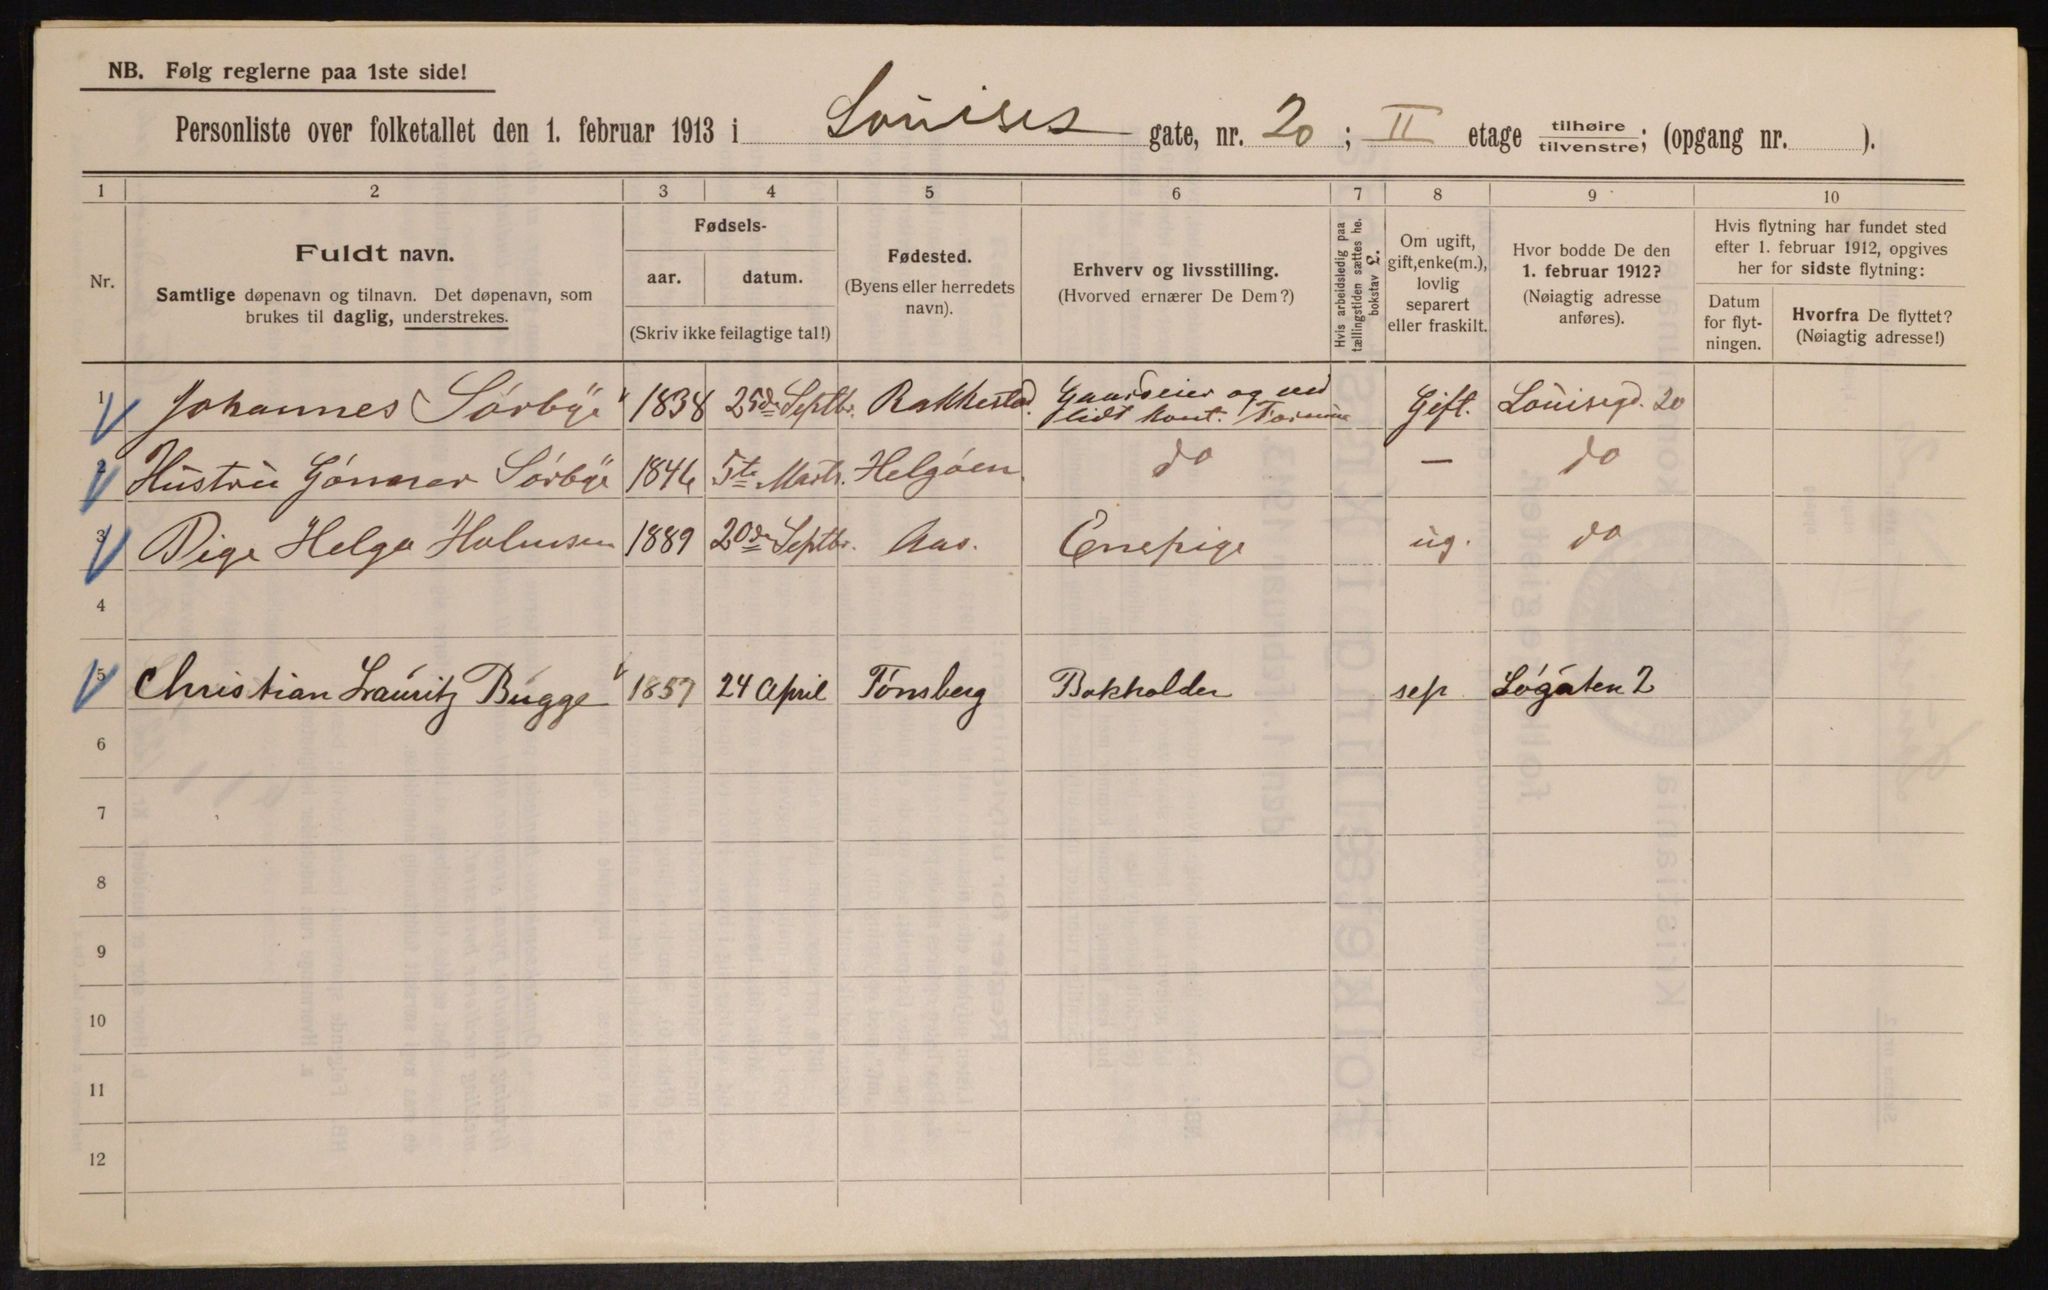 NB. Følg reglerne paa 1ste side!
Personliste over folketallet den 1. februar 1913 i Louises gate, nr. 20; II etage tilhøire tilvenstre; (opgang nr. ).
1 2 3 4 5 6 7 8 9 10
Nr.
Fuldt navn.
Samtlige døpenavn og tilnavn. Det døpenavn, som
brukes til daglig, understrekes.
Fødsels-
aar. datum.
(Skriv ikke feilagtige tal!)
Fødested.
(Byens eller herredets
navn).
Erhverv og livsstilling.
(Hvorved ernærer De Dem?)
Hvis arbeidsledig paa
tællingstiden sættes he.
bokstav L.
Om ugift,
gift, enke(m.),
lovlig
separert
eller fraskilt.
Hvor bodde De den
1. februar 1912?
(Nøiagtig adresse
anføres).
Hvis flytning har fundet sted
efter 1. februar 1912, opgives
her for sidste flytning:
Datum
for flyt-
ningen.
Hvorfra De flyttet?
(Nøiagtig adresse!)
1 Johannes Sørbye 1838 25de Septbr. Rakkestad. Gaardeier og ved lidt kont. Gift. Louisegd. 20
2 Hustru Gønner Sørbye 1846 5te Marts. Helgøen do — do
3 Pige Helga Holmsen 1889 20de Septbr. Aas. Enepige ug. do
4
5 Christian Lauritz Bugge 1857 24 April Tønsberg Bokholder sep Løgaten 2
6
7
8
9
10
11
12